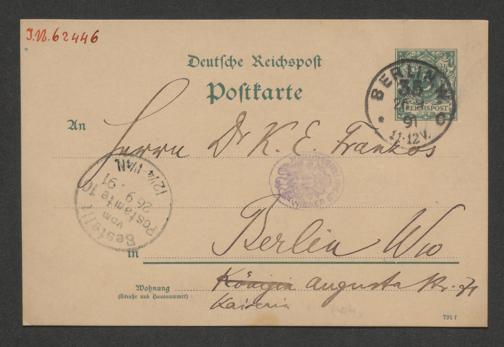 I.N. 62446
Deutsche Reichspost
Postkarte
BERLIN W.
35
26.9.
91
11-12V.
C
REICHSPOST
An
Herrn Dr K. E. Franzos
Bestellt
vom
Postamte 10
26 9. 91
12¼-1¼N.
in
Berlin W10
Wohnung
(Straße und Hausnummer)
Königin Augusta Str. 71
Kaiserin
791 f